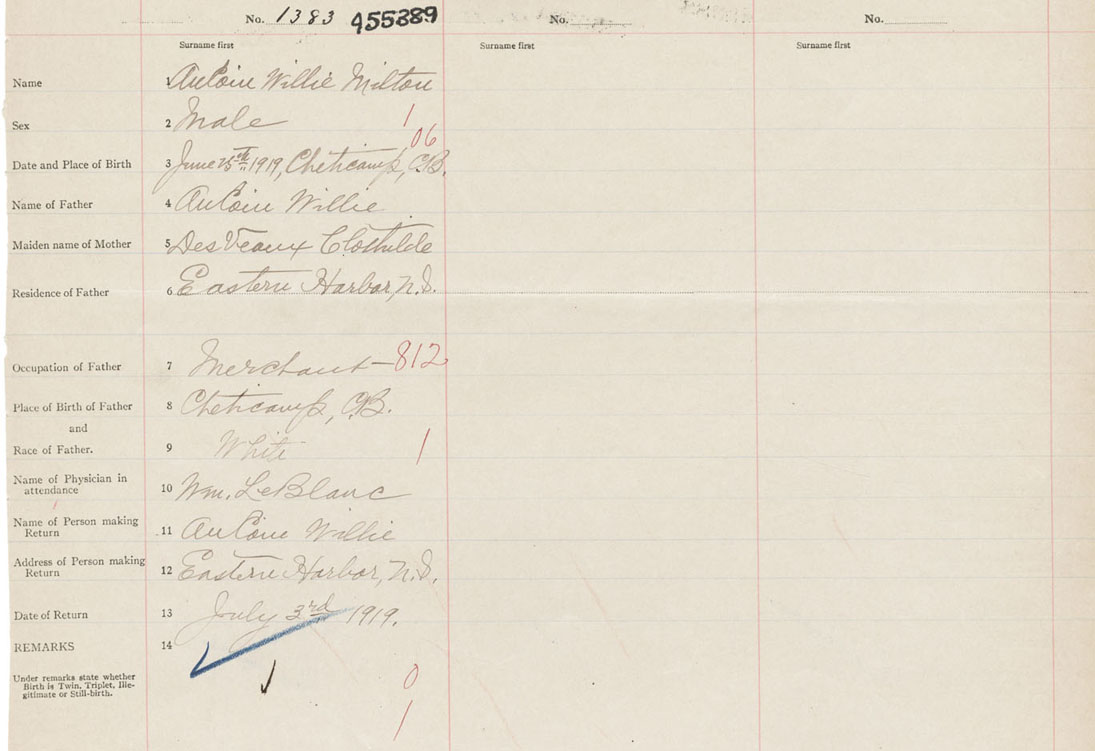 No. 1383 455389 No. No.
Surname first Surname first Surname first
Name 1 AuCoin Willie Milton
Sex 2 Male 1
06
Date and Place of Birth 3 June 25th 1919, Cheticamp, C.B.
Name of Father 4 AuCoin Willie
Maiden name of Mother 5 DesVeaux Clothilde
Residence of Father 6 Eastern Harbor, N.S.
Occupation of Father 7 Merchant — 812
Place of Birth of Father 8 Cheticamp, C.B.
and
Race of Father. 9 White 1
Name of Physician in
attendance 10 Wm. LeBlanc
Name of Person making
Return 11 AuCoin Willie
Address of Person making
Return 12 Eastern Harbor, N.S.
Date of Return 13 July 3rd 1919.
REMARKS 14
Under remarks state whether
Birth is Twin, Triplet, Ille-
gitimate or Still-birth.
0
1